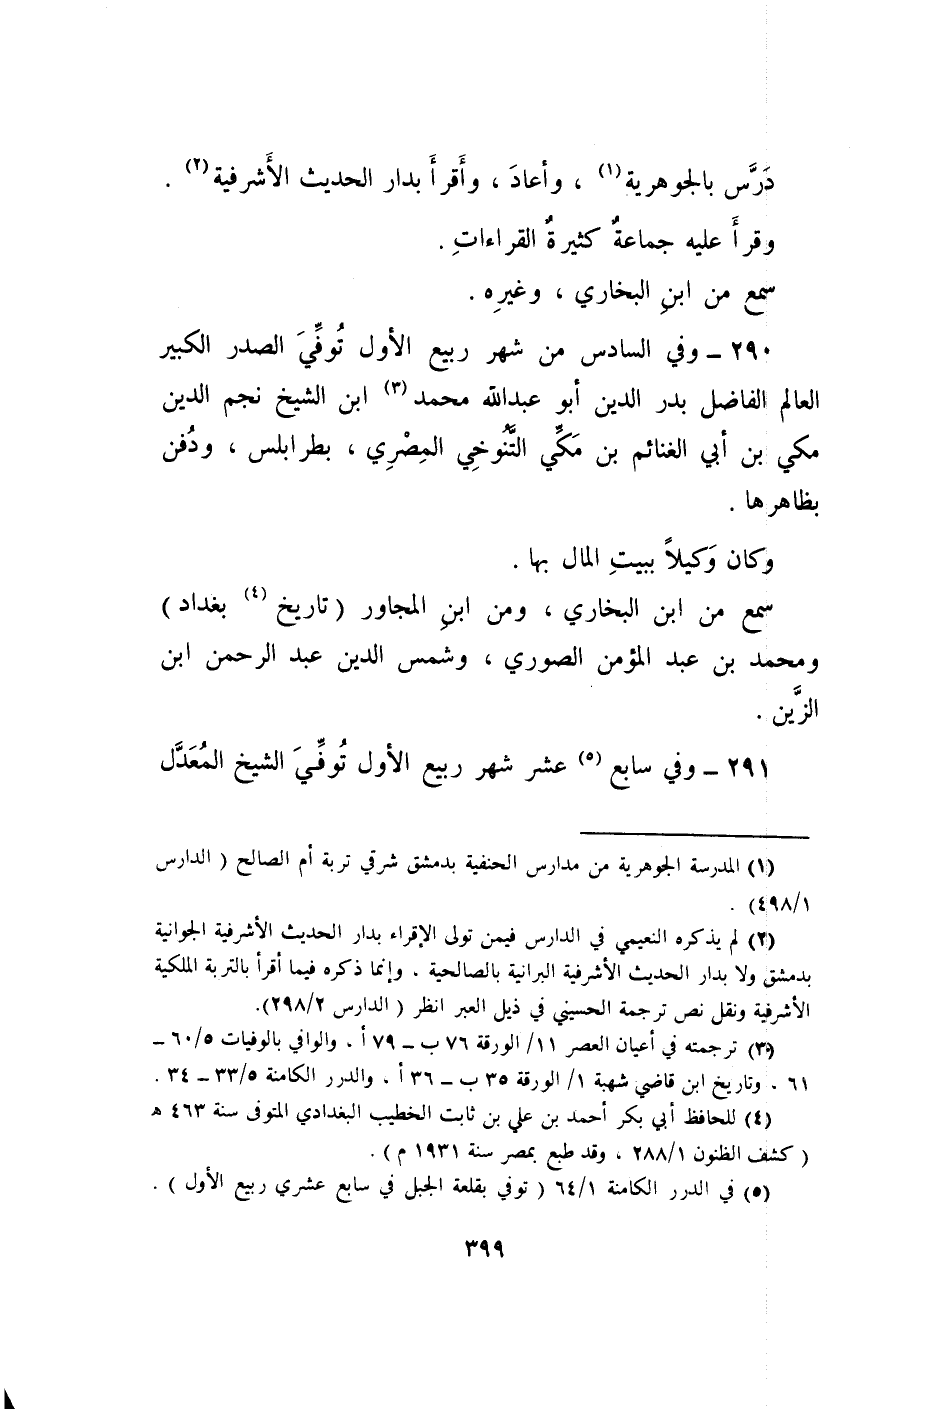 دَرَّس بالجوهرية(١) ، وأعادَ ، وأَقرأَ بدار الحديث الأَشرفية(٢) .
وقرأَ عليه جماعةٌ كثيرةٌ القراءاتِ .
سمع من ابنِ البخاري ، وغيرِه .
٢٩٠ ـ وفي السادس من شهر ربيع الأول تُوفِّيَ الصدر الكبير
العالم الفاضل بدر الدين أبو عبدالله محمد(٣) ابن الشيخ نجم الدين
مكي بن أبي الغنائم بن مَكِّي التَّنُوخي المِصْرِي ، بطرابلس ، ودُفن
بظاهرها .
وكان وَكيلاً ببيتِ المال بها .
سمع من ابن البخاري ، ومن ابنِ المجاور ( تاريخ(٤) بغداد )
ومحمد بن عبد المؤمن الصوري ، وشمس الدين عبد الرحمن ابن
الزَّين .
٢٩١ ـ وفي سابع(٥) عشر شهر ربيع الأول تُوفِّيَ الشيخ المُعَدَّل
(١) المدرسة الجوهرية من مدارس الحنفية بدمشق شرقي تربة أم الصالح ( الدارس
٤٩٨/١) .
(٢) لم يذكره النعيمي في الدارس فيمن تولى الإقراء بدار الحديث الأشرفية الجوانية
بدمشق ولا بدار الحديث الأشرفية البرانية بالصالحية . وإنما ذكره فيما أقرأ بالتربة الملكية
الأشرفية ونقل نص ترجمة الحسيني في ذيل العبر انظر ( الدارس ٢٩٨/٢).
(٣) ترجمته في أعيان العصر ١١/ الورقة ٧٦ ب ـ ٧٩ أ . والوافي بالوفيات ٦٠/٥ ـ
٦١ . وتاريخ ابن قاضي شهبة ١/ الورقة ٣٥ ب ـ ٣٦ أ . والدرر الكامنة ٣٣/٥ ـ ٣٤ .
(٤) للحافظ أبي بكر أحمد بن علي بن ثابت الخطيب البغدادي المتوفى سنة ٤٦٣ هـ
( كشف الظنون ٢٨٨/١ ، وقد طبع بمصر سنة ١٩٣١ م ) .
(٥) في الدرر الكامنة ٦٤/١ ( توفي بقلعة الجبل في سابع عشري ربيع الأول ) .
٣٩٩